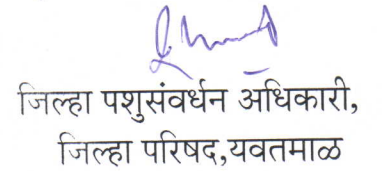 जिल्हा पशुसंवर्धन अधिकारी,
जिल्हा परिषद,यवतमाळ